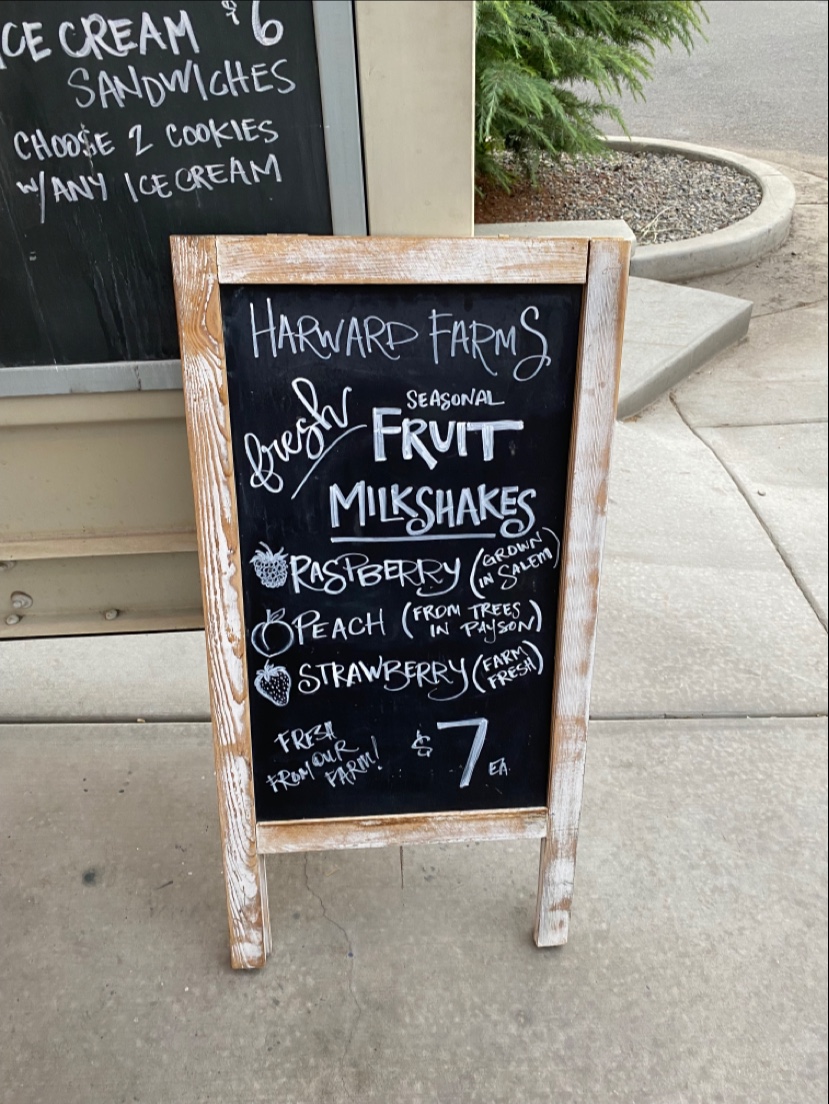 CE CREAM $6
SANDWICHES
CHOOSE 2 COOKIES
W/ANY ICE CREAM
HARWARD FARMS
fresh SEASONAL
FRUIT
MILKSHAKES
RASPBERRY (GROWN
IN SALEM)
PEACH (FROM TREES
IN PAYSON)
STRAWBERRY (FARM
FRESH)
FRESH
FROM OUR
FARM!
$7 EA.